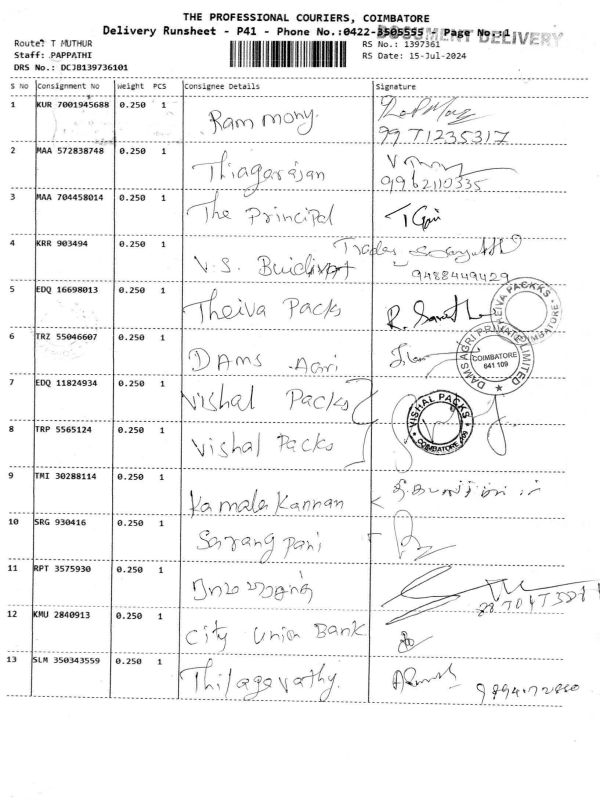 THE PROFESSIONAL COURIERS, COIMBATORE
Delivery Runsheet - P41 - Phone No.:0422-3505555 - Page No.:1
DOCUMENT DELIVERY
Route: T MUTHUR
RS No.: 1397361
Staff: PAPPATHI
RS Date: 15-Jul-2024
DRS No.: DCJB139736101
S No Consignment No Weight PCS Consignee Details Signature
1 KUR 7001945688 0.250 1 Ram mony.
2 MAA 572838748 0.250 1 Thiagarajan
9962110335
3 MAA 704458014 0.250 1 The Principal
4 KRR 903494 0.250 1 V.S. Traders
9488449429
5 EDQ 16698013 0.250 1 Theiva Packs
THEIVA PACKKS COIMBATORE
6 TRZ 55046607 0.250 1 DAMS Agri
DAMS AGRI PRIVATE LIMITED ★ COIMBATORE 641 109
7 EDQ 11824934 0.250 1 Vishal Packs
★ VISHAL PACKS ★ COIMBATORE
8 TRP 5565124 0.250 1 Vishal Packs
9 TMI 30288114 0.250 1 Kamala Kannan
10 SRG 930416 0.250 1 Sarang pani
11 RPT 3575930 0.250 1
12 KMU 2840913 0.250 1 City Union Bank
13 SLM 350343559 0.250 1 Thilagavathy.